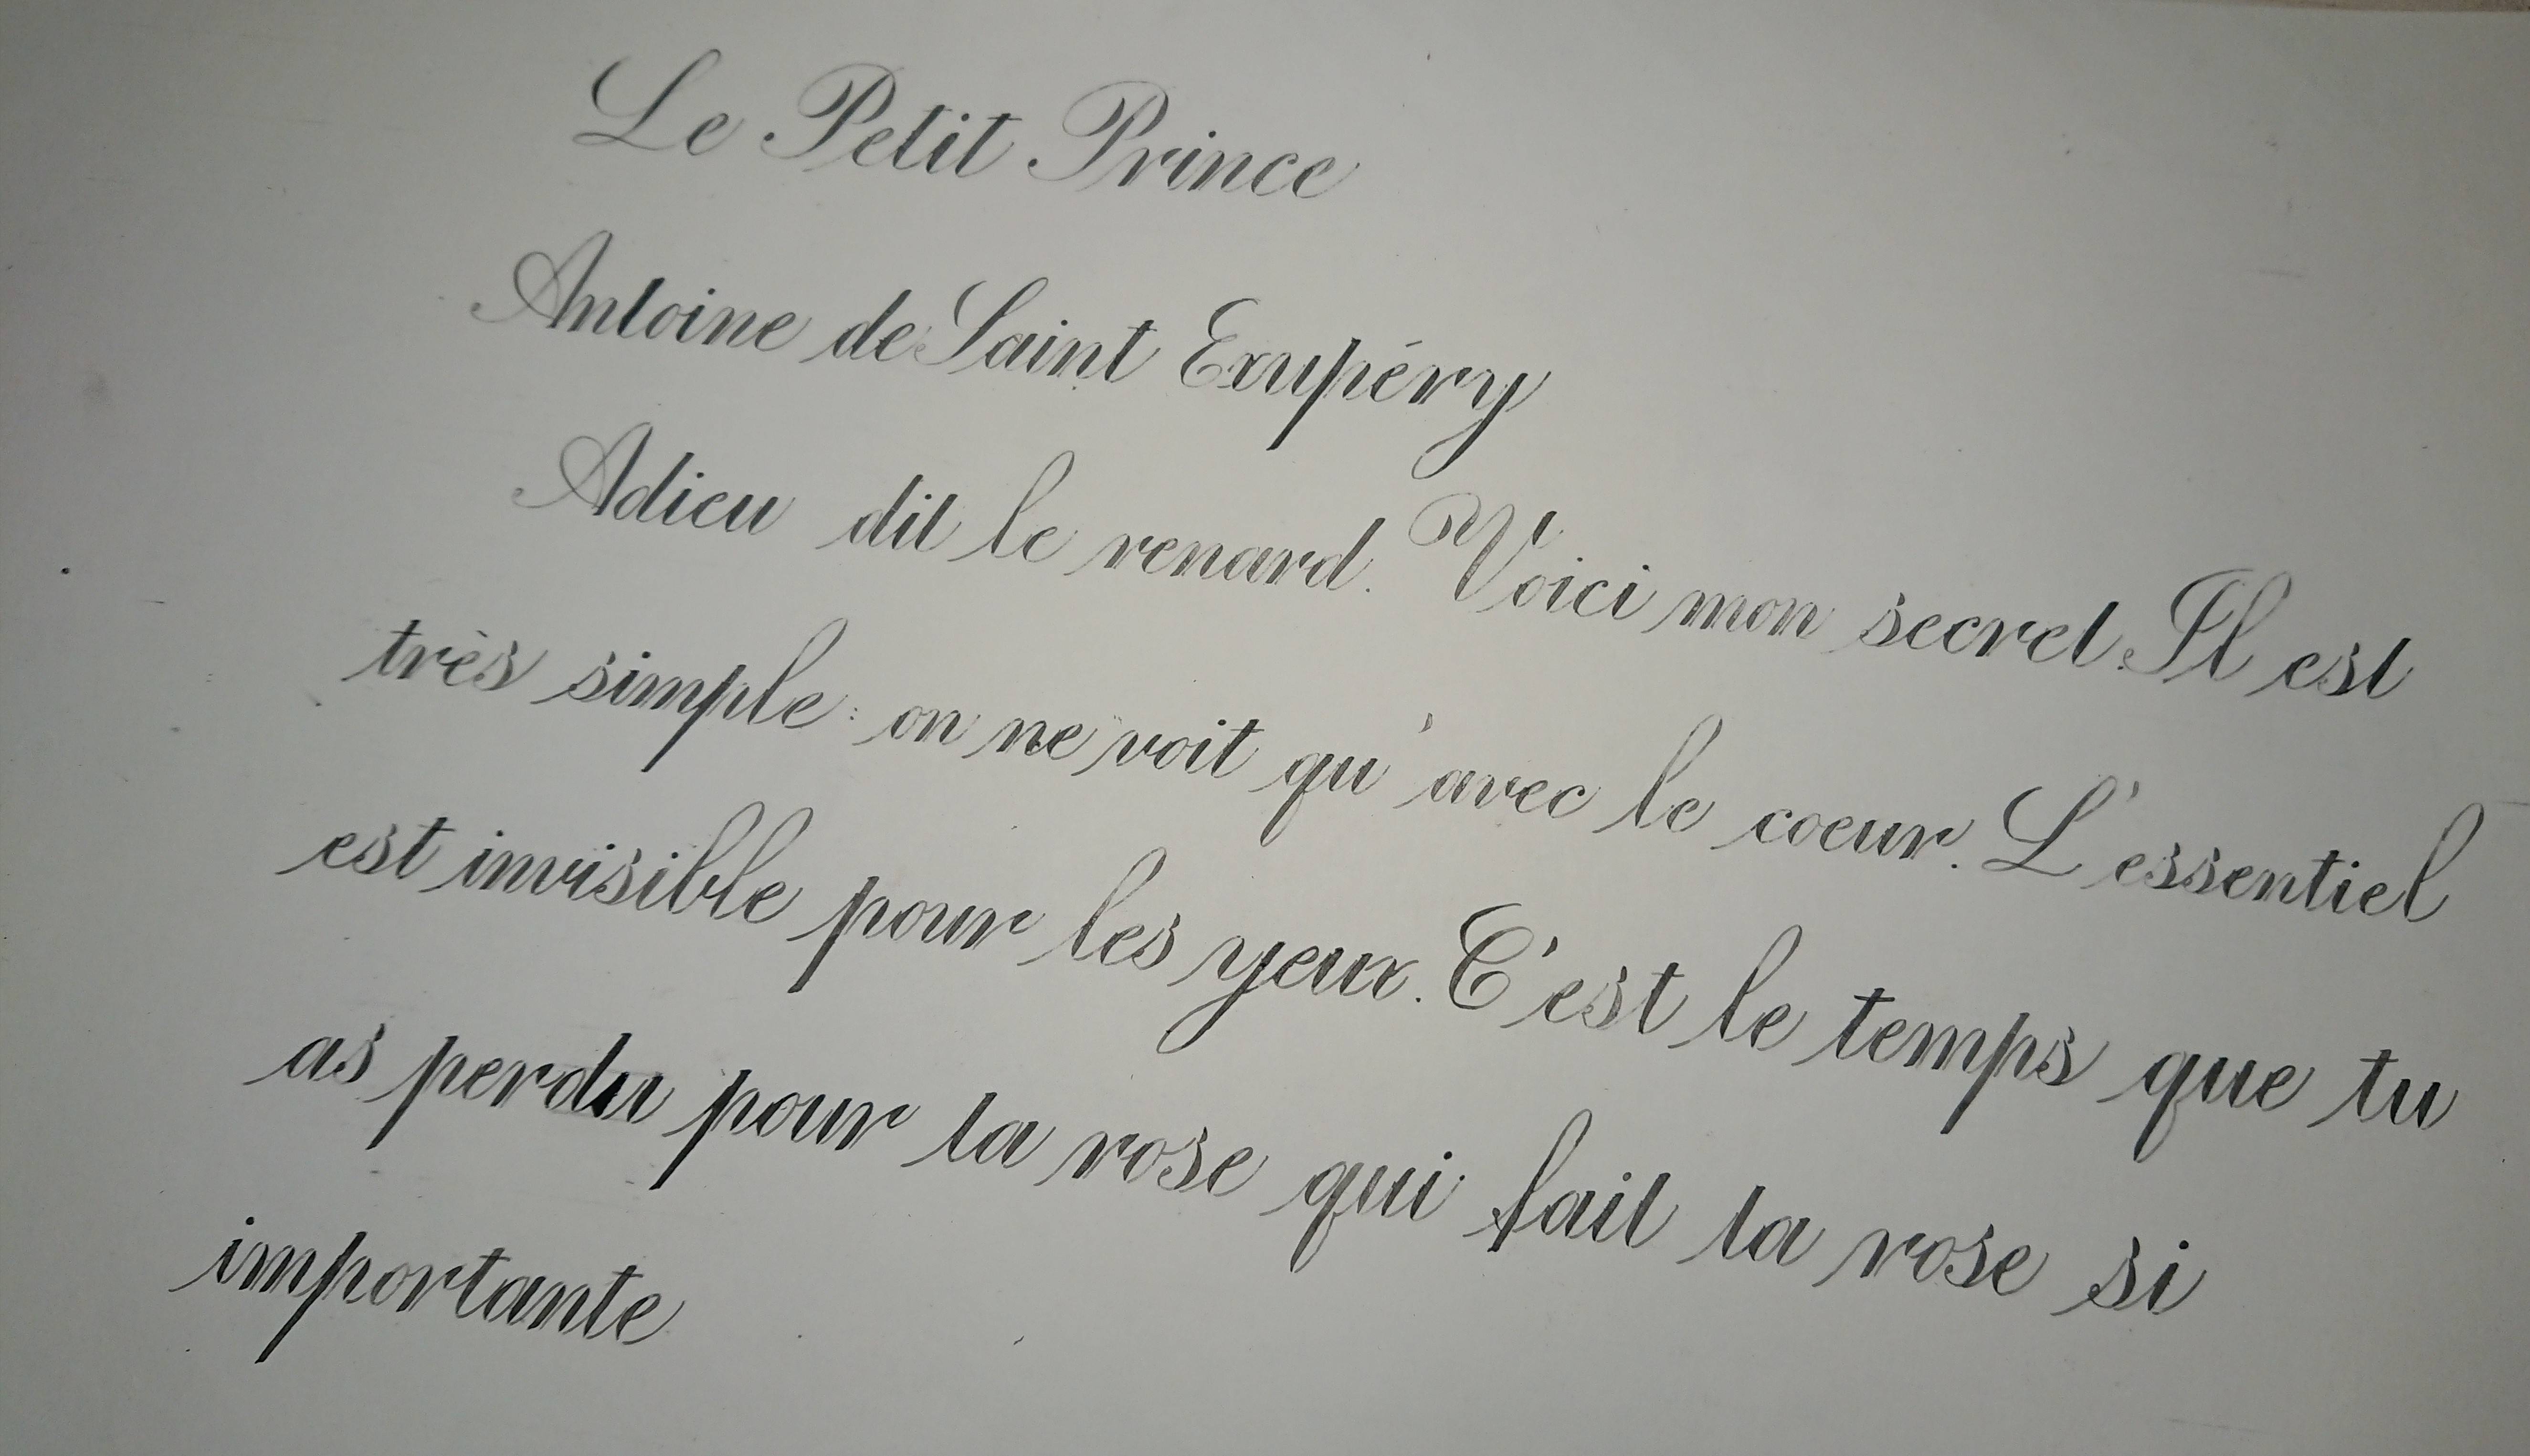 Le Petit Prince
Antoine de Saint Exupéry
Adieu dit le renard. Voici mon secret. Il est
très simple : on ne voit qu'avec le coeur. L'essentiel
est invisible pour les yeux. C'est le temps que tu
as perdu pour ta rose qui fait ta rose si
importante